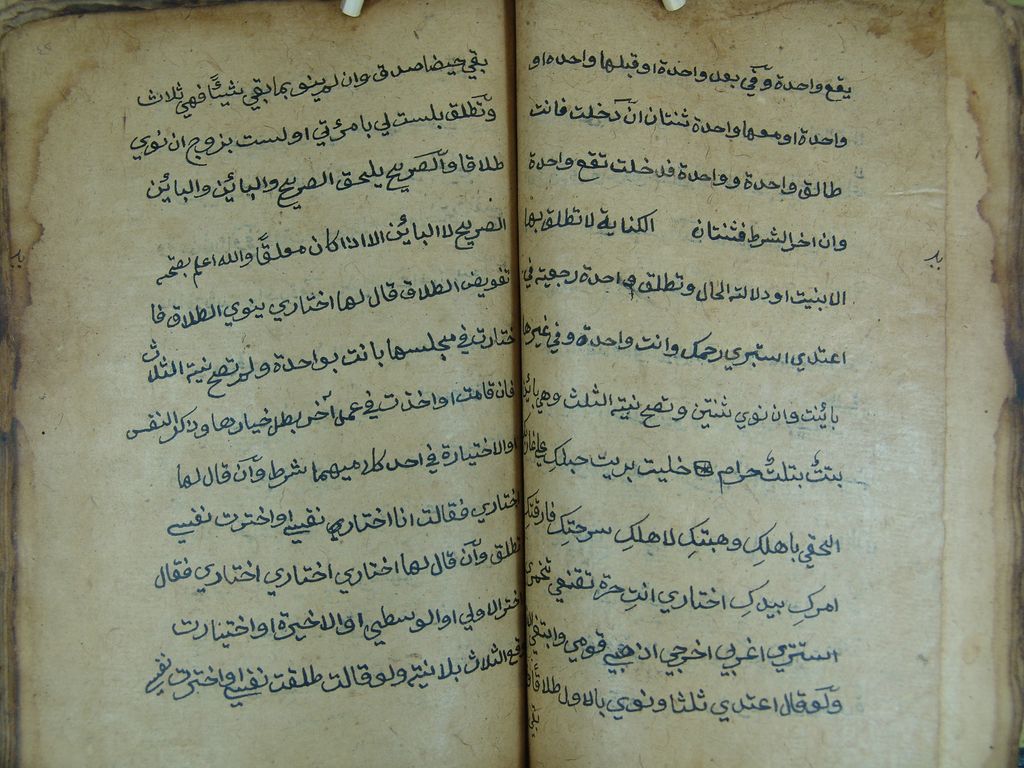 يقع واحدة وفي بعد واحدة او قبلها واحدة او
واحدة او معها واحدة ثنتان ان دخلت فانت
طالق واحدة وواحدة فدخلت تقع واحدة
وان اخر الشرط فثنتان الكناية لا تطلق بها
الا بنيت او دلالة الحال وتطلق واحدة رجعية في
اعتدي استبري رحمك وانت واحدة وفي غيرها
بائنت وان نوي ثنتين وتصح نية الثلث وهي بائن
بتت بتلت حرام خليت بريت حبلك علي غاربك
الحقي باهلكِ وهبتكِ لاهلكِ سرحتكِ فارقتكِ
امركِ بيدكِ اختاري انتِ حرة تقنعي تخمري
استتري اغربي اخرجي اذهبي قومي وابتغي
ولو قال اعتدي ثلثا ونوي بالاول طلاقا
بقي حيضا صدق وان لم ينو بما بقي شيئًا فهي ثلاث
وتطلق بلست لي بامرتي او لست بزوج ان نوي
طلاقا والصريح يلحق الصريح والبائن والبائن
الصريح لا البائن الا اذا كان معلقًا والله اعلم
تفويض الطلاق قال لها اختاري ينوي الطلاق فا
ختارت في مجلسها بانت بواحدة ولم تصح نية الثلاث
فان قامت او اخذت في عمل آخر بطل خيارها وذكر النفس
او الاختيارة في احد كلاميهما شرط وان قال لها
اختاري فقالت انا اختاري نفسي او اخترت نفسي
تطلق وان قال لها اختاري اختاري اختاري فقال
اختر الاولي او الوسطي او الاخيرة او اختيارت
وقع الثلاث بلا نية ولو قالت طلقت نفسي او اخترت نفسي